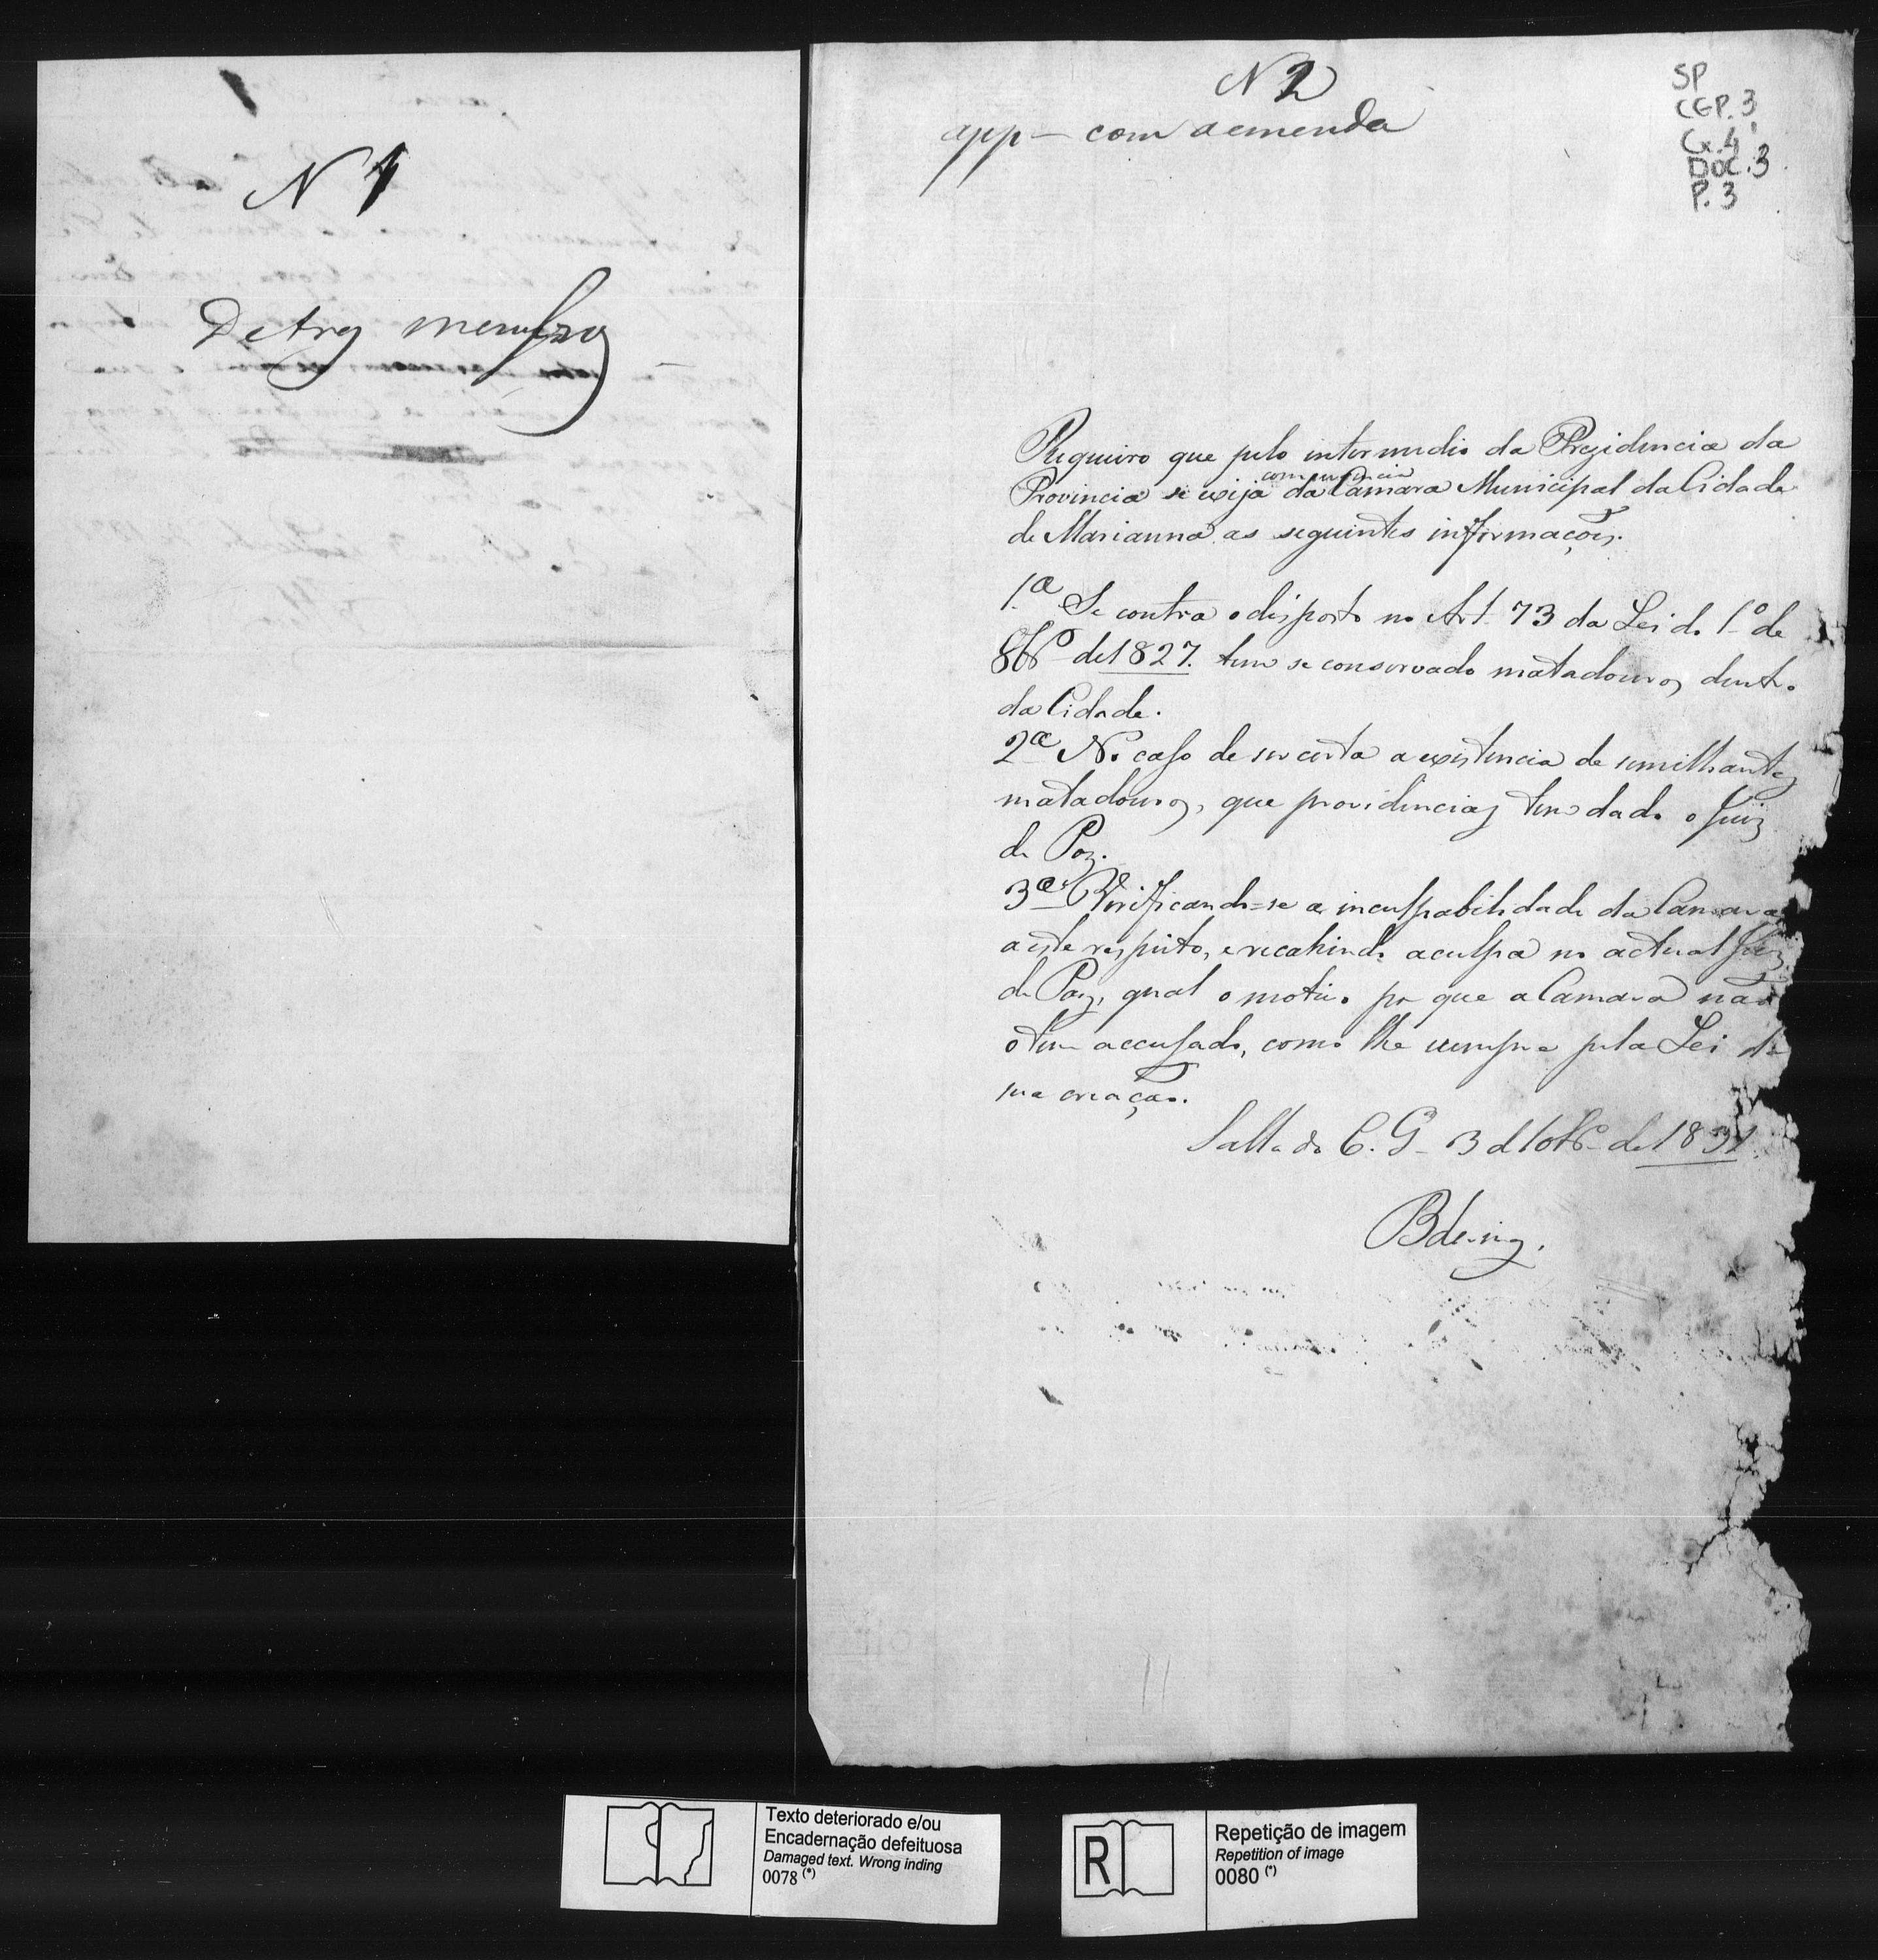 N 1
De tres membros
N 2
app — com a emenda
SP
CGP. 3
Cx. 4
DOC. 3
P. 3
Requeiro que pelo intermedio da Prezidencia da
com urgencia
Provincia se exija da Camara Municipal da Cidade
de Marianna as seguintes informações.
1.ª Se contra o disposto no Art. 73 da Lei do 1º de
8bro de 1827. tem se conservado matadouros dentro
da Cidade.
2ª No caso de ser certa a existencia de similhantes
matadouros, que providencias tem dado o Juiz
de Paz.
3ª Verificando-se a inculpabilidade da Camara
a este respeito, e recahindo a culpa no actual Juiz
de Paz, qual o motivo por que a Camara não
o tem accusado, como lhe cumpre pela Lei de
sua creação.
Salla do C. G. 3 de de 1831
Texto deteriorado e/ou
Encadernação defeituosa
Damaged text. Wrong inding
0078 (*)
R
Repetição de imagem
Repetition of image
0080 (*)